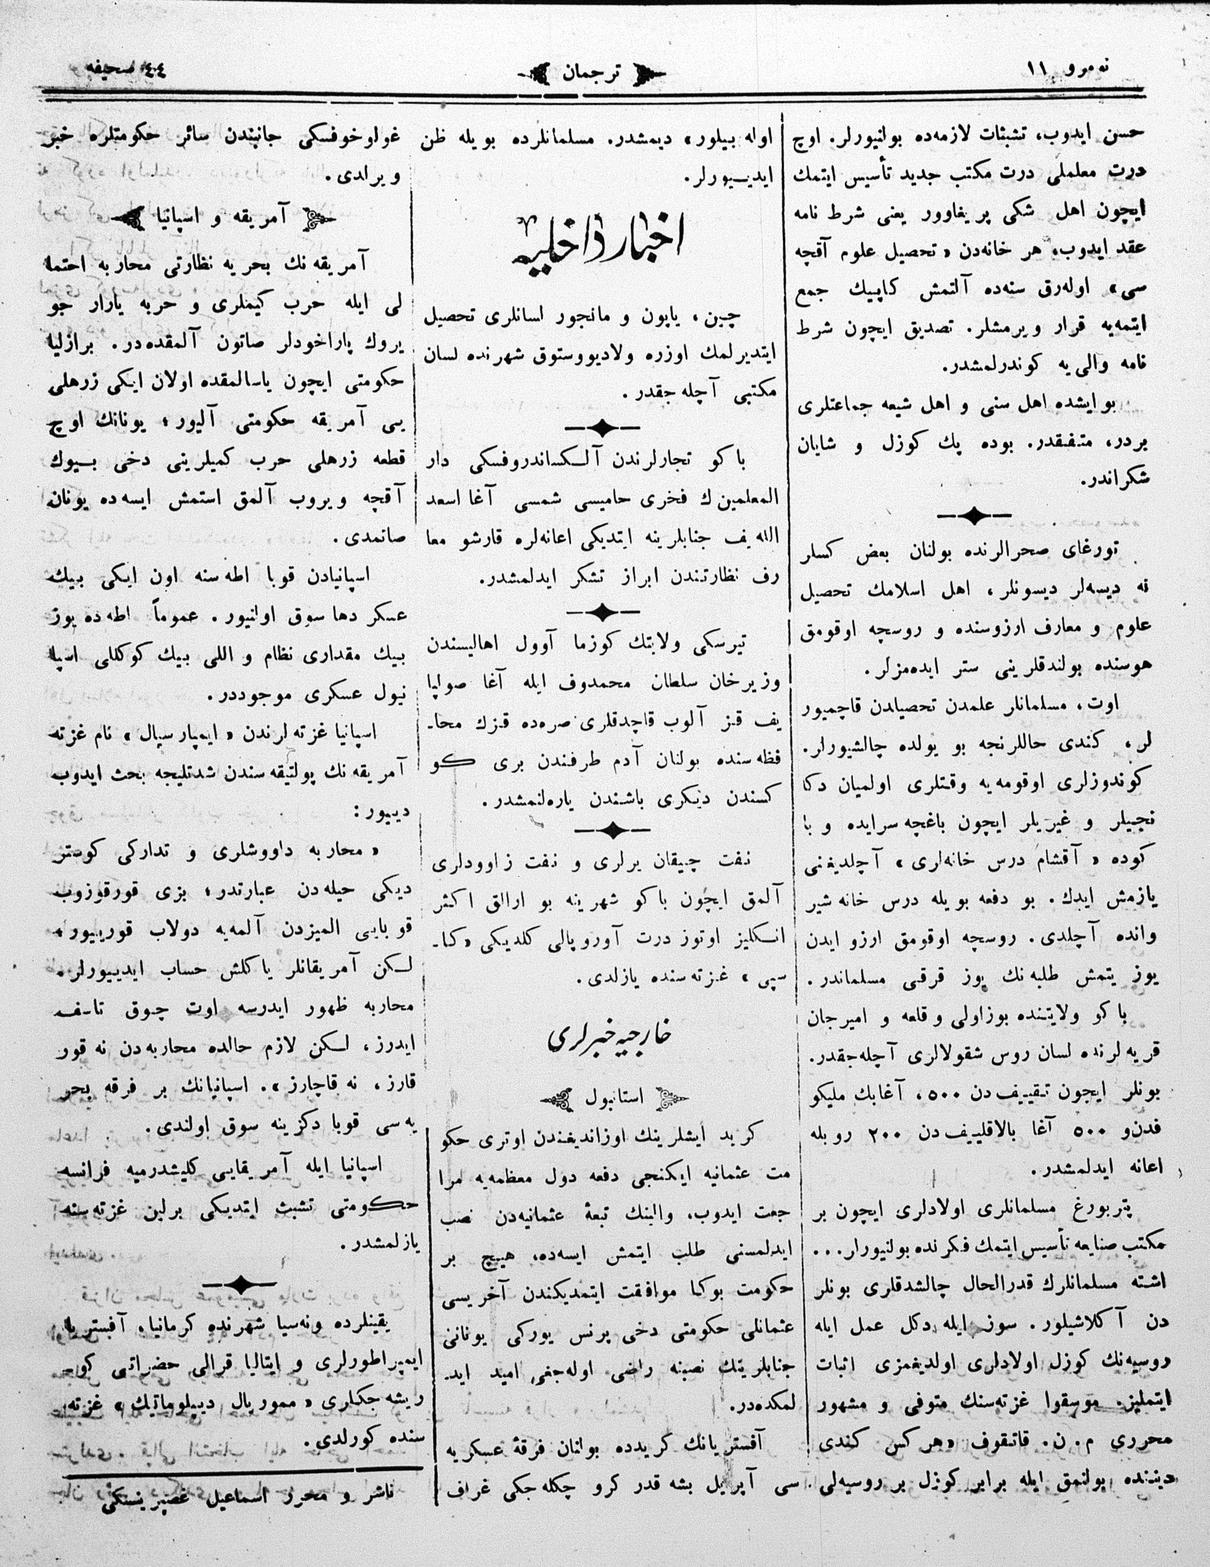 نومرو ١١
ترجمان
٤٤ صحیفه
حسن ایدوب، تشبثات لازمه‌ده بولنیورلر. اوچ
درت معلملی درت مکتب جدید تأسیس ایتمك
ایچون اهل شکی پریغاوور یعنی شرط نامه
عقد ایدوب، هر خانه‌دن «تحصیل علوم آقچه
سی» اوله‌رق سنه‌ده آلتمش کاپیك جمع
ایتمه‌یه قرار ویرمشلر. تصدیق ایچون شرط
نامه والی‌یه کوندرلمشدر.
بو ایشده اهل سنی و اهل شیعه جماعتلری
بردر، متفقدر. بوده پك کوزل و شایان
شکراندر.
تورغای صحرالرنده بولنان بعض کسلر
نه دیسه‌لر دیسونلر، اهل اسلامك تحصیل
علوم و معارف ارزوسنده و روسچه اوقومق
هوسنده بولندقلرینی ستر ایده‌مزلر.
اوت، مسلمانلر علمدن تحصیلدن قاچمیور
لر، کندی حاللرنجه بو یولده چالشیورلر.
کوندوزلری اوقومه‌یه وقتلری اولمیان دکا
نجیلر و غیریلر ایچون باغچه سرایده و با
کوده «آقشام درس خانه‌لری» آچلدیغنی
یازمش ایدك. بو دفعه بویله درس خانه شیر
وانده آچلدی. روسچه اوقومق ارزو ایدن
یوز یتمش طلبه‌نك یوز قرقی مسلماندر.
باکو ولایتنده بوزاولی و قلعه و امیرجان
قریه‌لرنده لسان روس شقولالری آچله‌جقدر.
بونلر ایچون تقییف‌دن ٥٠٠، آغابك ملیکو
فدن‌و ٥٠٠ آغا بالاقلییف‌دن ٢٠٠ روبله
اعانه ایدلمشدر.
پتربورغ مسلمانلری اولادلری ایچون بر
مکتب صنایعه تأسیس ایتمك فکرنده بولنیورلر...
اشته مسلمانلرك قدرالحال چالشدقلری بونلر
دن آکلاشیلور. سوز ایله دکل عمل ایله
روسیه‌نك کوزل اولادلری اولدیغمزی اثبات
ایتملیز. موسقوا غزته‌سنك متوفی و مشهور
محرری م. ن. قاتقوف «هرکس کندی
دیننده بولنمق ایله برابر کوزل بر روسیه‌لی
اوله بیلور» دیمشدر. مسلمانلرده بویله ظن
ایدییورلر.
اخبار داخلیه
چین، یاپون و مانجور لسانلری تحصیل
ایتدیرلمك اوزره ولادیووستوق شهرنده لسان
مکتبی آچله‌جقدر.
باکو تجارلرندن آلکساندروفسکی دار
المعلمین‌ك فخری حامیسی شمسی آغا اسعد
الله‌یف جنابلرینه ایتدیکی اعانه‌لره قارشو معا
رف نظارتندن ابراز تشکر ایدلمشدر.
تیرسکی ولایتك کوزما آوول اهالیسندن
وزیرخان سلطان محمدوف ایله آغا صولپا
یف قز آلوب قاچدقلری صره‌ده قزك محا-
فظه‌سنده بولنان آدم طرفندن بری کو
کسندن دیکری باشندن یاره‌لنمشدر.
نفت چیقان یرلری و نفت زاوودلری
آلمق ایچون باکو شهرینه بو ارالق اکثر
انکلیز اوتوز درت آوروپالی کلدیکی «کا-
سپی» غزته‌سنده یازلدی.
خارجیه خبرلری
استانبول
کرید ایشلرینك اوزاندیغندن اوتری حکو
مت عثمانیه ایکنجی دفعه دول معظمه‌یه مرا
جعت ایدوب، والینك تبعۀ عثمانیه‌دن نصب
ایدلمسنی طلب ایتمش ایسه‌ده، هیچ بر
حکومت بوکا موافقت ایتمدیکندن آخریسی
عثمانلی حکومتی دخی پرنس یورکی یونانی
جنابلرینك نصبنه راضی اوله‌جغی امید اید
لمکده‌در.
آفستریانك کریدده بولنان فرقۀ عسکریه
سی آپریل بشه قدر کرو چکله‌جکی غراف
غولوخوفسکی جانبندن سائر حکومتلره خبر
ویرلدی.
آمریقه و اسپانیا
آمریقه‌نك بحریه نظارتی محاربه احتما
لی ایله حرب کیملری و حربه یارار جو
یروك پاراخودلر صاتون آلمقده‌در. برازلیا
حکومتی ایچون یاسالمقده اولان ایکی زرهلی
یی آمریقه حکومتی آلیور، یونانك اوچ
قطعه زرهلی حرب کمیلرینی دخی بیوك
آقچه ویروب آلمق استمش ایسه‌ده یونان
صاتمدی.
اسپانیادن قوبا اطه‌سنه اون ایکی بیك
عسکر دها سوق اولنیور. عموماً اطه‌ده یوز
بیك مقداری نظام و اللی بیك کوکللی اسپا
نیول عسکری موجوددر.
اسپانیا غزته‌لرندن «ایمپارسیال» نام غزته
آمریقه‌نك پولتیقه‌سندن شدتلیجه بحث ایدوب
دییور:
«محاربه داووشلری و تدارکی کوستر
دیکی حیله‌دن عبارتدر؛ بزی قورقوزوب
قوبایی المیزدن آلمه‌یه دولاب قورییور،
لکن آمریقانلر یاکلش حساب ایدییورلر.
محاربه ظهور ایدرسه اوت چوق تاسف
ایدرز، لکن لازم حالده محاربه‌دن نه قور
قارز، نه قاچارز». اسپانیانك بر فرقه بحر
یه‌سی قوبا دکزینه سوق اولندی.
اسپانیا ایله آمریقایی کلیشدرمیه فرانسه
حکومتی تشبث ایتدیکی برلین غزته‌سنه
یازلمشدر.
یقینلرده ونه‌سیا شهرنده کرمانیا، آفستریا
ایمپراطورلری و ایتالیا قرالی حضراتی کو
ریشه‌جکلری «مموریال دیپلوماتیك» غزته
سنده کورلدی.
ناشر و محرر اسماعیل غصپرینسکی